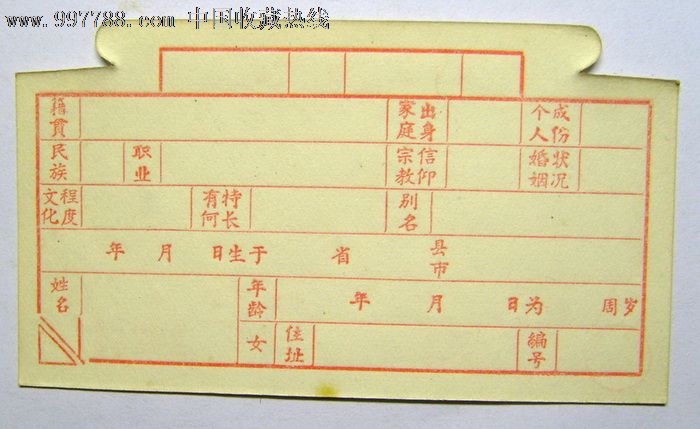 www.997788.com 中国收藏热线
籍贯 家庭出身 个人成份
民族 职业 宗教信仰 婚姻状况
文化程度 有何特长 别名
年 月 日生于 省 县市
姓名 年龄 年 月 日为 周岁
女 住址 编号